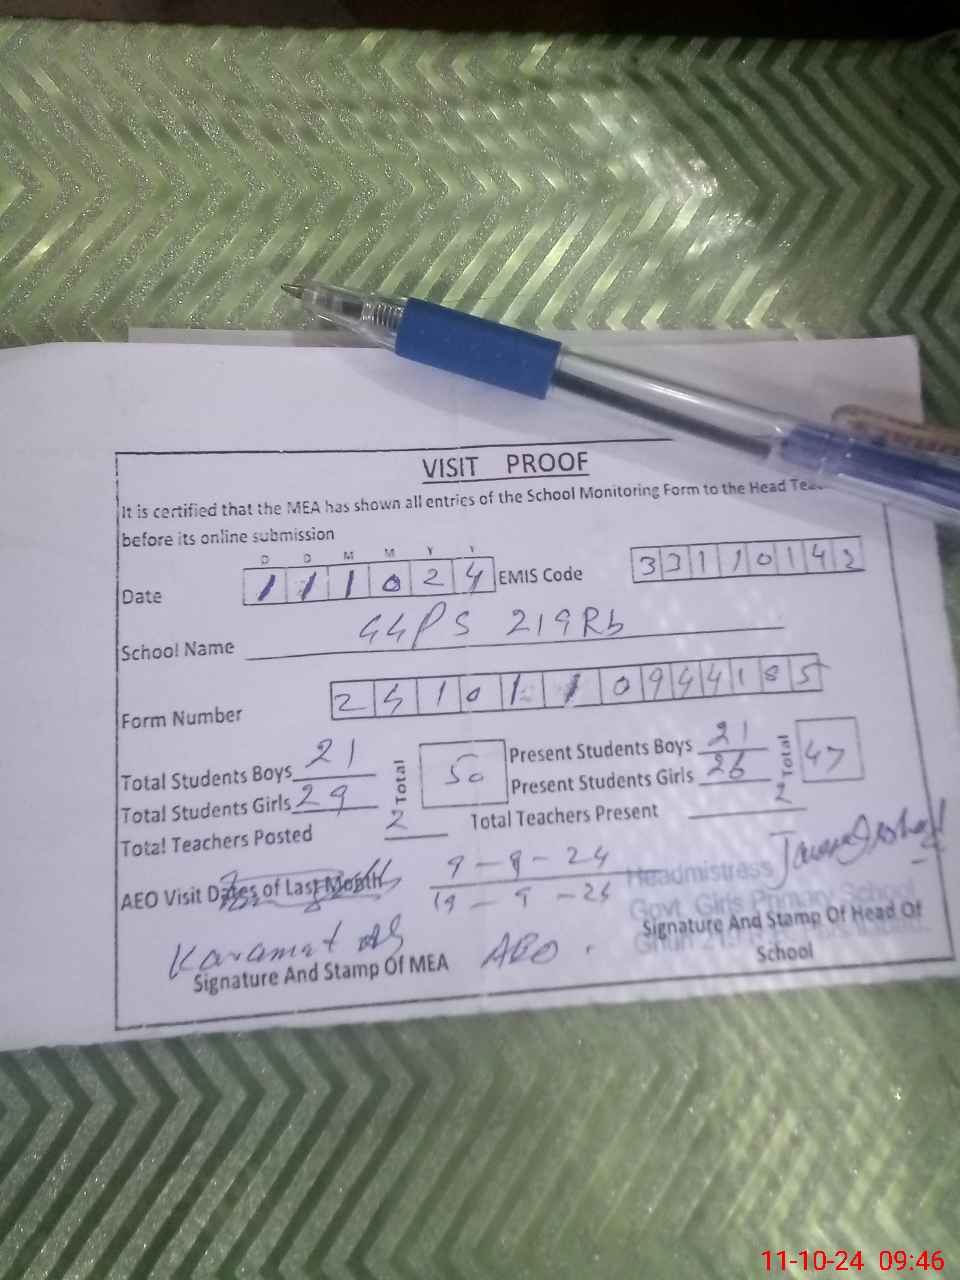 VISIT PROOF
It is certified that the MEA has shown all entries of the School Monitoring Form to the Head
before its online submission
D D M M Y Y
Date 1 1 1 0 2 4 EMIS Code 3 3 1 1 0 1 4 2
School Name GGPS 219Rb
Form Number 2 4 1 0 1 1 0 9 4 4 1 8 5
Total Students Boys 21 Total 50 Present Students Boys 21 Total 47
Total Students Girls 29 Present Students Girls 26
Total Teachers Posted 2 Total Teachers Present 2
AEO Visit Dates of Last Month 9-9-24
19-9-24
Headmistress
Govt. Girls Primary School
Karamat Ali AEO
Signature And Stamp Of MEA
Signature And Stamp Of Head Of
School
11-10-24 09:46